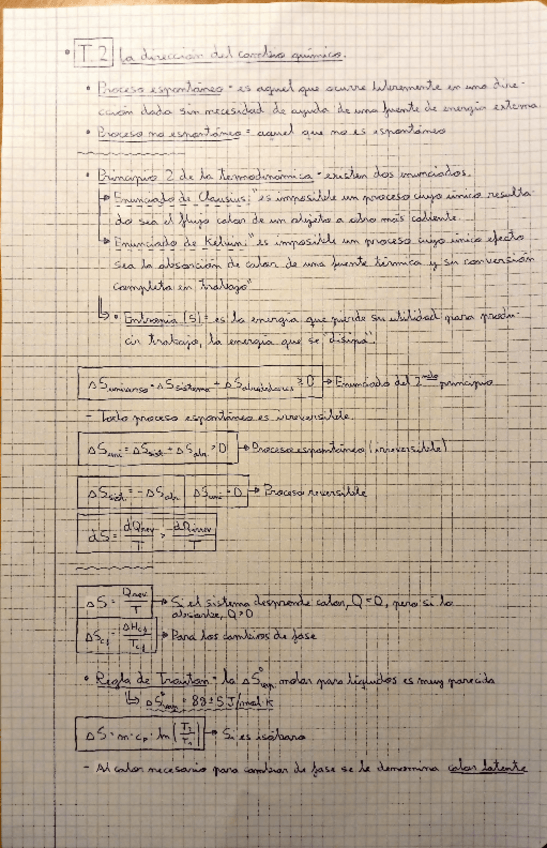 • T.2 La dirección del cambio químico.
• Proceso espontáneo = es aquel que ocurre libremente en una dire-
cción dada sin necesidad de ayuda de una fuente de energía externa
• Proceso no espontáneo = aquel que no es espontáneo
• Principio 2 de la termodinámica = existen dos enunciados.
→ Enunciado de Clausius: "es imposible un proceso cuyo único resulta-
do sea el flujo calor de un objeto a otro más caliente.
→ Enunciado de Kelvin: "es imposible un proceso cuyo único efecto
sea la absorción de calor de una fuente térmica y su conversión
completa en trabajo"
↳ • Entropía (S) = es la energía que pierde su utilidad para produ-
cir trabajo, la energía que se "disipa".
ΔS universo = ΔS sistema + ΔS alrededores ≥ 0 → Enunciado del 2 principio
- Todo proceso espontáneo es irreversible.
ΔS uni = ΔS sist + ΔS alr > 0 → Proceso espontáneo (irreversible)
ΔS sist = - ΔS alr ΔS uni = 0 → Proceso reversible
dS = dQrev / T > dQirrev / T
ΔS = Qrev / T → Si el sistema desprende calor, Q < 0, pero si lo
absorbe, Q > 0
ΔS cf = ΔH cf / T cf → Para los cambios de fase
• Regla de Trouton = la ΔS° vap molar para líquidos es muy parecida
↳ ΔS° vap = 88 ± 5 J/mol·K
ΔS = m · cp · ln (T2 / T1) → Si es isóbaro
- Al calor necesario para cambiar de fase se le denomina calor latente